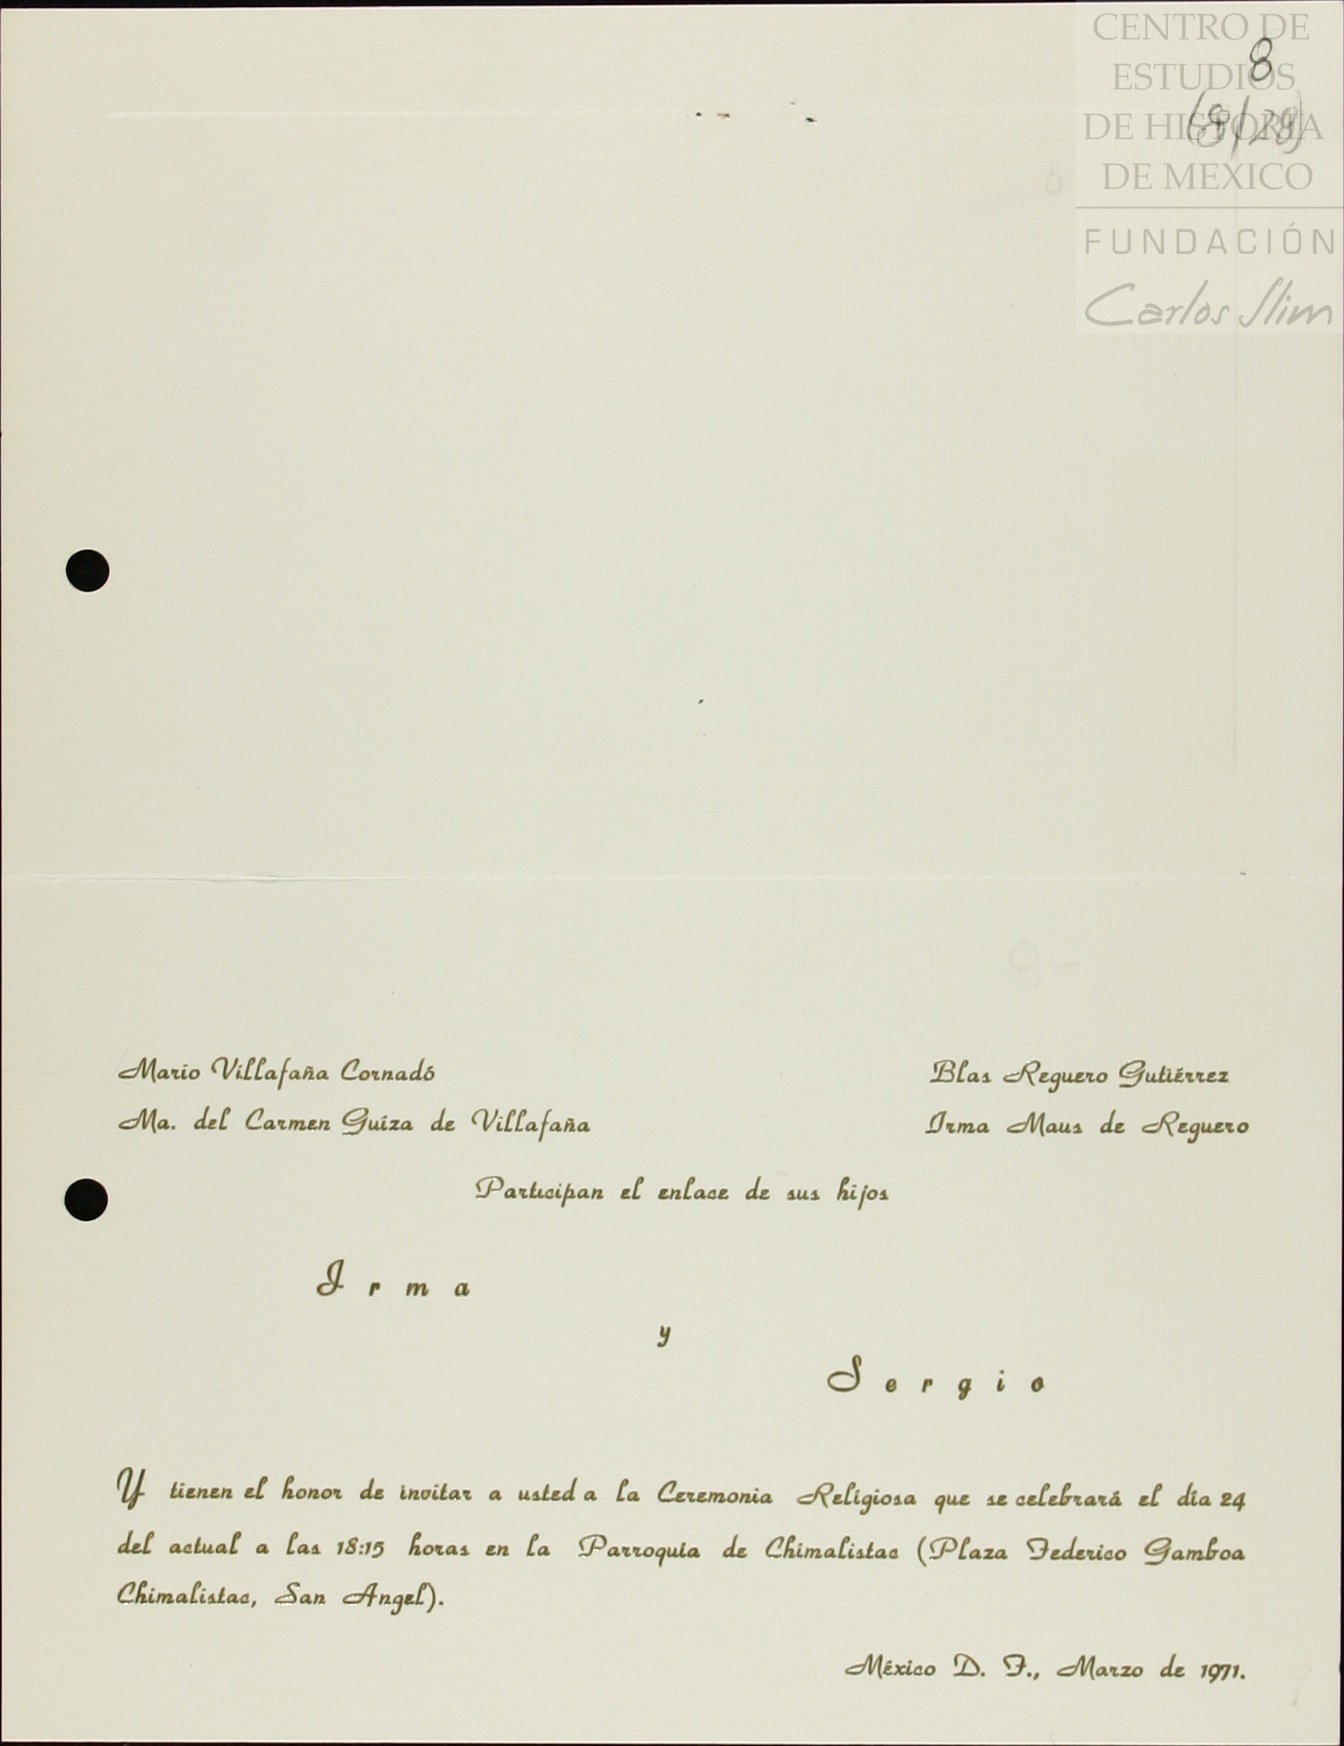 CENTRO DE
ESTUDIOS
DE HISTORIA
DE MEXICO
FUNDACIÓN
Carlos Slim
8
Mario Villafaña Cornadó
Ma. del Carmen Guíza de Villafaña
Blas Reguero Gutiérrez
Irma Maus de Reguero
Participan el enlace de sus hijos
Irma
y
Sergio
Y tienen el honor de invitar a usted a la Ceremonia Religiosa que se celebrará el día 24
del actual a las 18:15 horas en la Parroquia de Chimalistac (Plaza Federico Gamboa
Chimalistac, San Angel).
México D. F., Marzo de 1971.